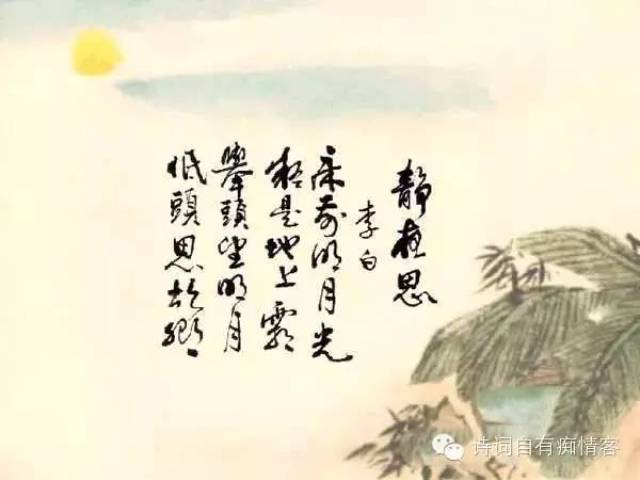 靜夜思
李白
床前明月光
疑是地上霜
舉頭望明月
低頭思故鄉
诗词自有痴情客